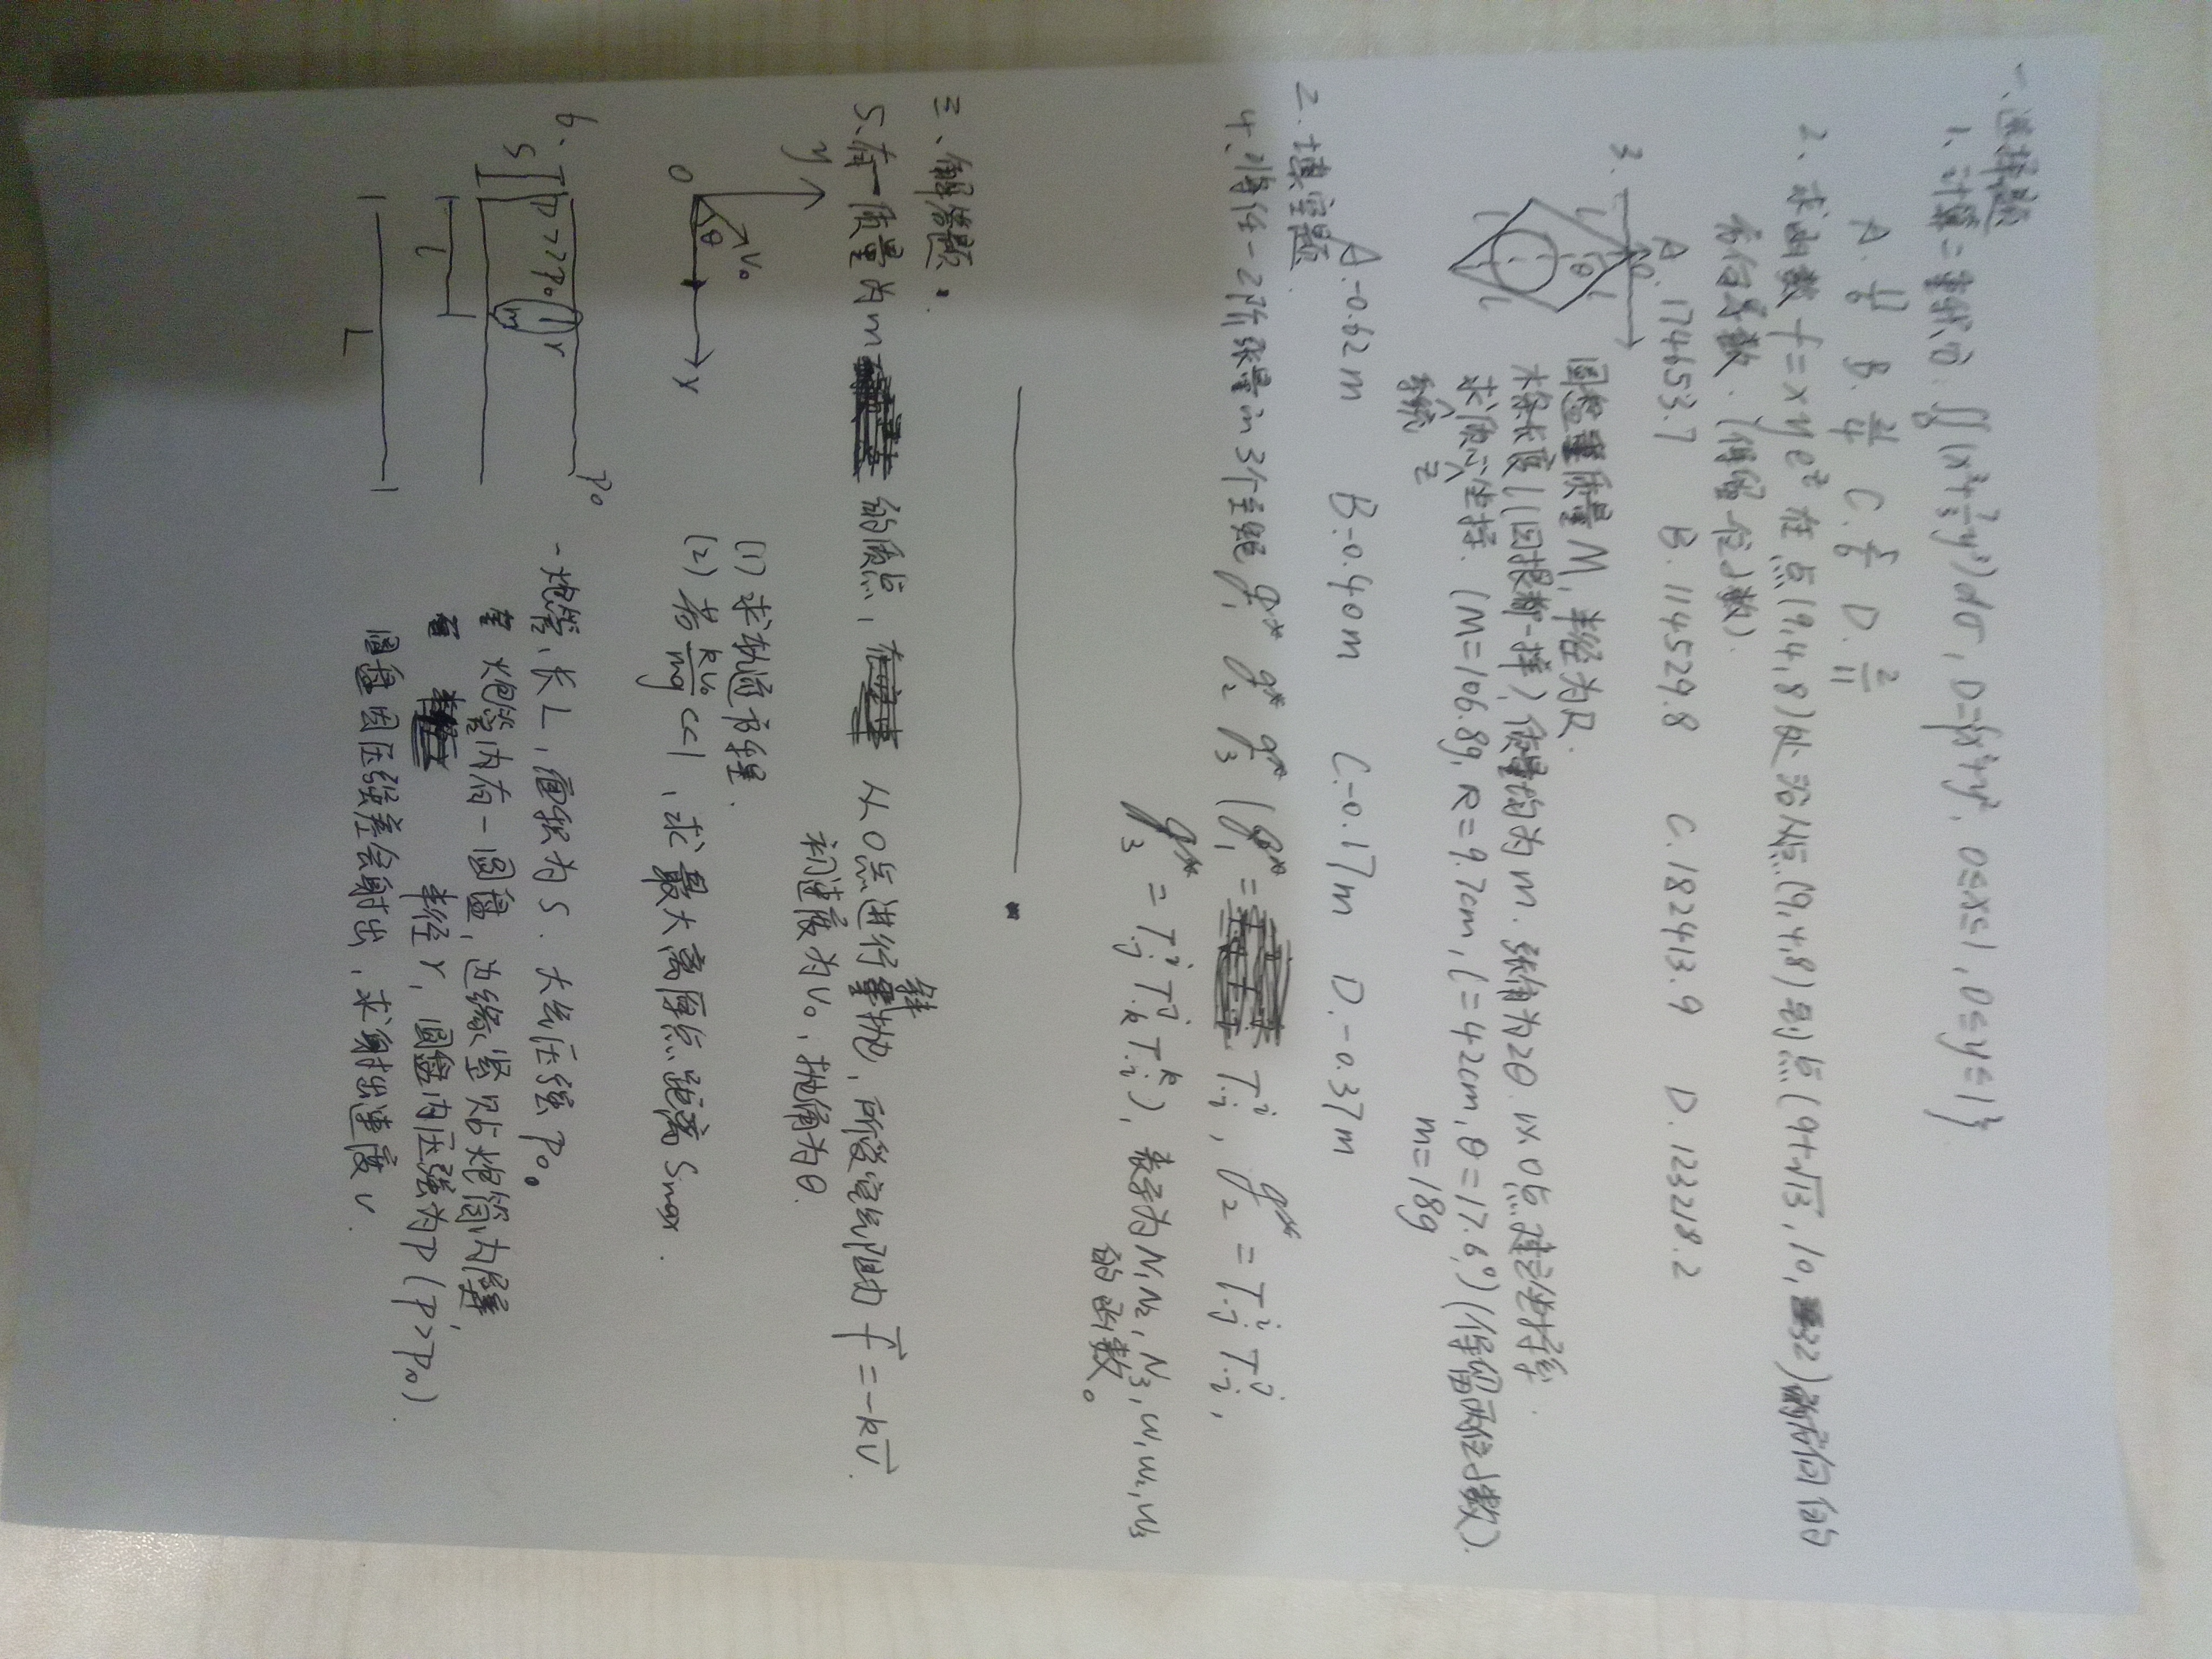 一、选择题
1、计算二重积分. ∬_D (x²+⅔y²)dσ, D={x²+y², 0≤x≤1, 0≤y≤1}
A. B. C. D. 2/11
2、求函数 f=xye^z 在点(9,4,8)处沿从点(9,4,8)到点(9+√13, 10, 32)方向的
方向导数. (保留一位小数).
A. 174653.7 B. 114529.8 C. 182413.9 D. 123218.2
3.
圆盘质量M, 半径为R.
木条长度l(四根都一样), 质量均为m. 张角为2θ. 以O点建立坐标系.
求质心坐标. (M=106.8g, R=9.7cm, l=42cm, θ=17.6°) (保留两位小数).
系统 m=18g
A.-0.62m B.-0.40m C.-0.17m D.-0.37m
2.填空题
4、将任一2阶张量的3个主矩 g₁* g₂* g₃* (g₁* = T^i_{·i}, g₂* = T^i_{·j} T^j_{·i},
g₃* = T^i_{·j} T^j_{·k} T^k_{·i}), 表示为N₁, N₂, N₃, w₁, w₂, w₃
的函数。
三、解答题:
5.有一质量为m 的质点, 从O点进行斜抛, 所受空气阻力 f = -kv.
初速度为v₀, 抛角为θ.
y
v₀
θ
O
x
(1) 求轨道方程.
(2) 若 kv₀/mg <<1, 求最大高度点距离 Smax.
6.
S
P>>P₀
m
r
P₀
l
L
一炮管, 长L, 面积为S. 大气压强P₀。
炮管内有一圆盘, 边缘紧贴炮筒内壁,
半径r, 圆盘内压强为P (P>P₀).
圆盘因压强差会射出, 求射出速度v.